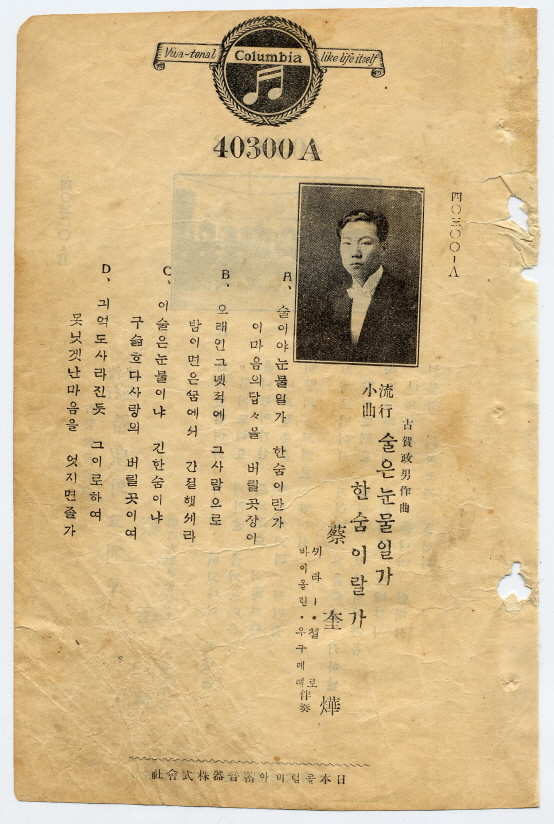 Viva-tonal
Columbia
like life itself
40300A
四〇三〇〇-A
古賀政男作曲
流行
小曲
술은눈물일가
한숨이랄가
蔡奎燁
끼타ー・첼로
바이올린・우구레레伴奏
A、술이야눈물일가 한숨이란가
이마음의답々믈 버릴곳장이
B、오래인그녯적에 그사람으로
밤이면은쑴에서 간절햇세라
C、이술은눈물이냐 긴한숨이냐
구슯흐다사랑의 버릴곳이여
D、긔억도사라진듯 그이로하여
못닛겟난마음을 엇지면죨가
日本콜럼비아蓄音器株式會社